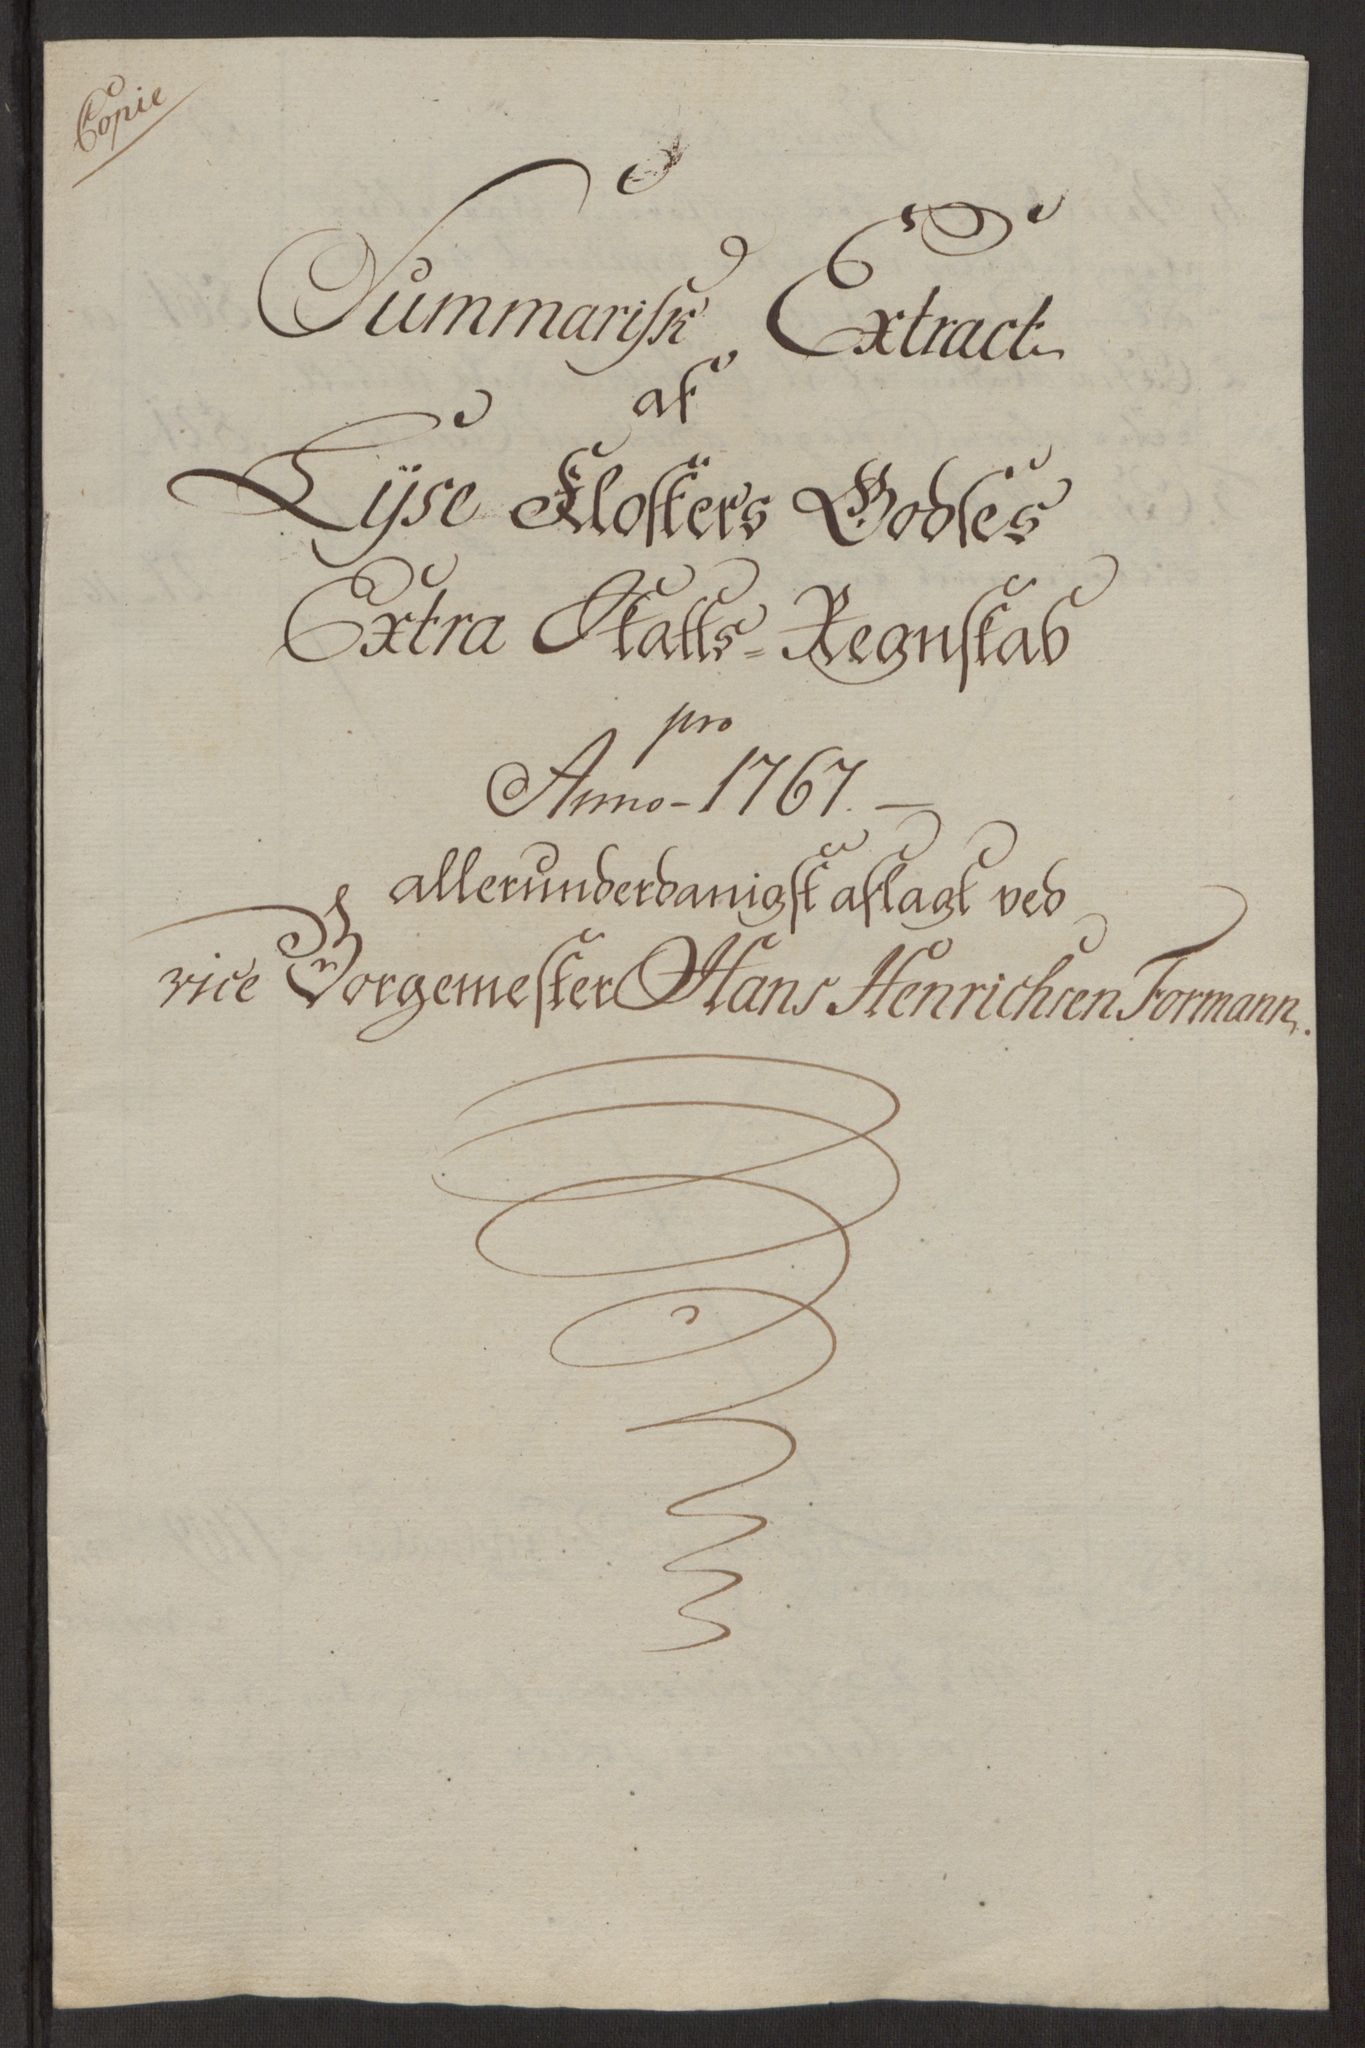 Copie
Summarisk Extract
af
Lÿse Klosters Godses
Extra Skatts-Regnskab
pro
Anno-1767.
allerunderdanigst aflagt ved
vice Borgemester Hans Henrichsen Formann.